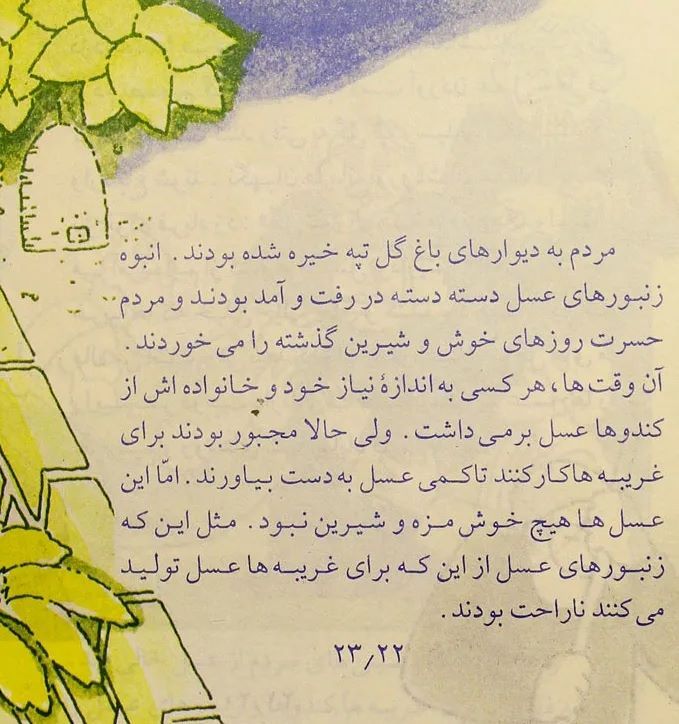 مردم به دیوارهای باغ گل تپه خیره شده بودند. انبوه
زنبورهای عسل دسته دسته در رفت و آمد بودند و مردم
حسرت روزهای خوش و شیرین گذشته را می خوردند.
آن وقت ها، هر کسی به اندازهٔ نیاز خود و خانواده اش از
کندوها عسل برمی داشت. ولی حالا مجبور بودند برای
غریبه ها کار کنند تا کمی عسل به دست بیاورند. امّا این
عسل ها هیچ خوش مزه و شیرین نبود. مثل این که
زنبورهای عسل از این که برای غریبه ها عسل تولید
می کنند ناراحت بودند.
۲۳٫۲۲